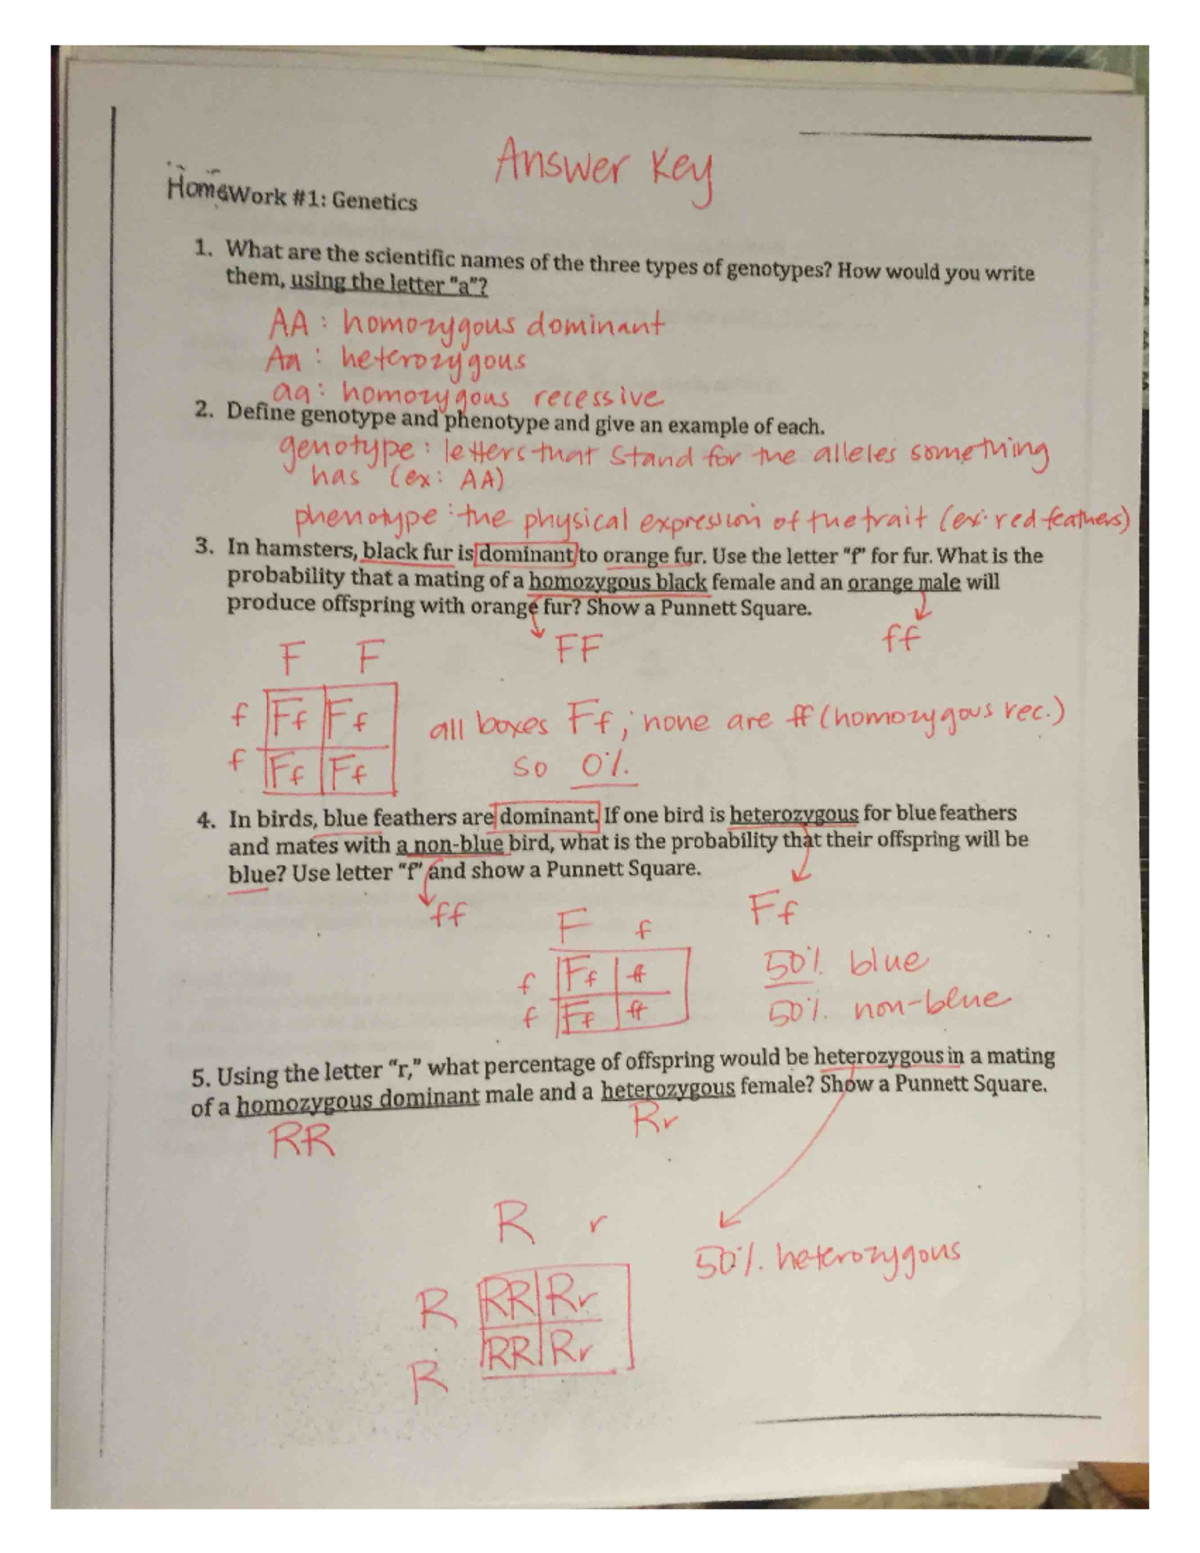 Answer Key
HomeWork #1: Genetics
1. What are the scientific names of the three types of genotypes? How would you write
them, using the letter "a"?
AA : homozygous dominant
Aa : heterozygous
aa : homozygous recessive
2. Define genotype and phenotype and give an example of each.
genotype : letters that stand for the alleles something
has (ex: AA)
phenotype : the physical expression of the trait (ex: red feathers)
3. In hamsters, black fur is dominant to orange fur. Use the letter "f" for fur. What is the
probability that a mating of a homozygous black female and an orange male will
produce offspring with orange fur? Show a Punnett Square.
FF ff
F F
f Ff Ff
all boxes Ff ; none are ff (homozygous rec.)
f Ff Ff
so 0%.
4. In birds, blue feathers are dominant. If one bird is heterozygous for blue feathers
and mates with a non-blue bird, what is the probability that their offspring will be
blue? Use letter "f" and show a Punnett Square.
ff Ff
F f
f Ff ff
50% blue
f Ff ff
50% non-blue
5. Using the letter "r," what percentage of offspring would be heterozygous in a mating
of a homozygous dominant male and a heterozygous female? Show a Punnett Square.
RR Rr
R r
50% heterozygous
R RR Rr
R RR Rr